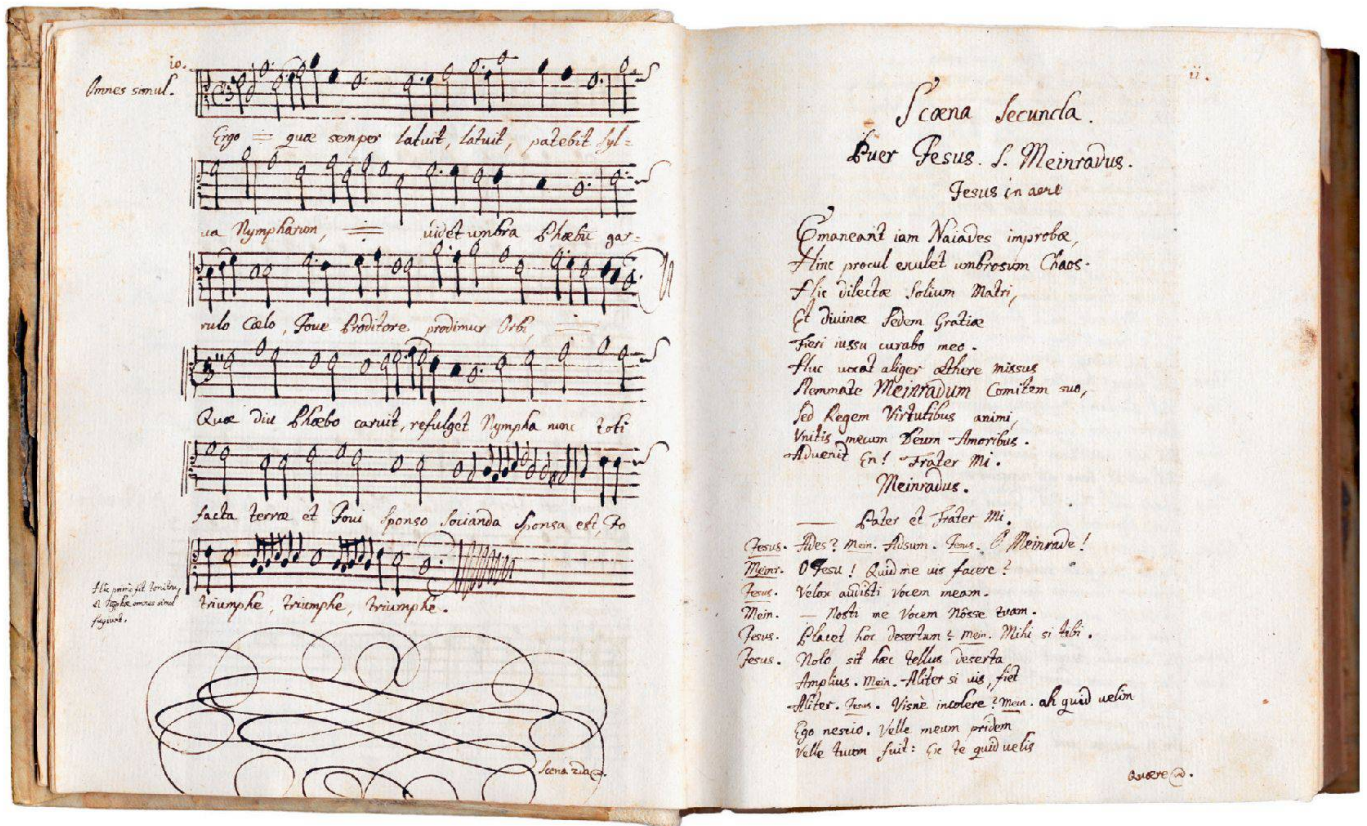 10.
Omnes simul.
Ergo = quæ semper latuit, latuit, patebit syl=
va Nympharum, = videt umbra Phæbũ gar=
rulo Cælo, Jove Proditore prodimur Orbi =
Quæ diu Phæbo caruit, refulget Nympha nunc toti
facta terræ et Jovi sponso socianda sponsa est, Jo
triumphe, triumphe, triumphe.
omnes simul
fugiunt.
Scena 2da
11.
Scæna Secunda.
Puer Jesus. S. Meinradus.
Jesus in aere
Emaneant iam Naiades improbæ,
Hinc procul exulet umbrosum Chaos.
Hic dilectæ Solium Matri,
Et divinæ Sedem Gratiæ
Fieri iussu curabo meo.
Huc vocat aliger æthere missus
Stemmate Meinradum Comitem suo,
Sed Regem Virtutibus animi,
Unitis mecum Deum Amoribus.
Advenit En! Frater Mi.
Meinradus.
— Pater et Frater Mi.
Jesus. Ades? Mein. Adsum. Jesus. O Meinrade!
Meinr. O Jesu! Quid me vis facere?
Jesus. Velox audisti Vocem meam.
Mein. Nosti me Vocem Nôsse tuam.
Jesus. Placet hoc desertum? Mein. Mihi si tibi.
Jesus. Nolo sit hæc tellus deserta
Amplius. Mein. Aliter si vis, fiet
Aliter. Jesus. Visnè incolere? Mein. ah quid velim
Ego nescio. Velle meum pridem
Velle tuum fuit: Ex te quid velis
Quære